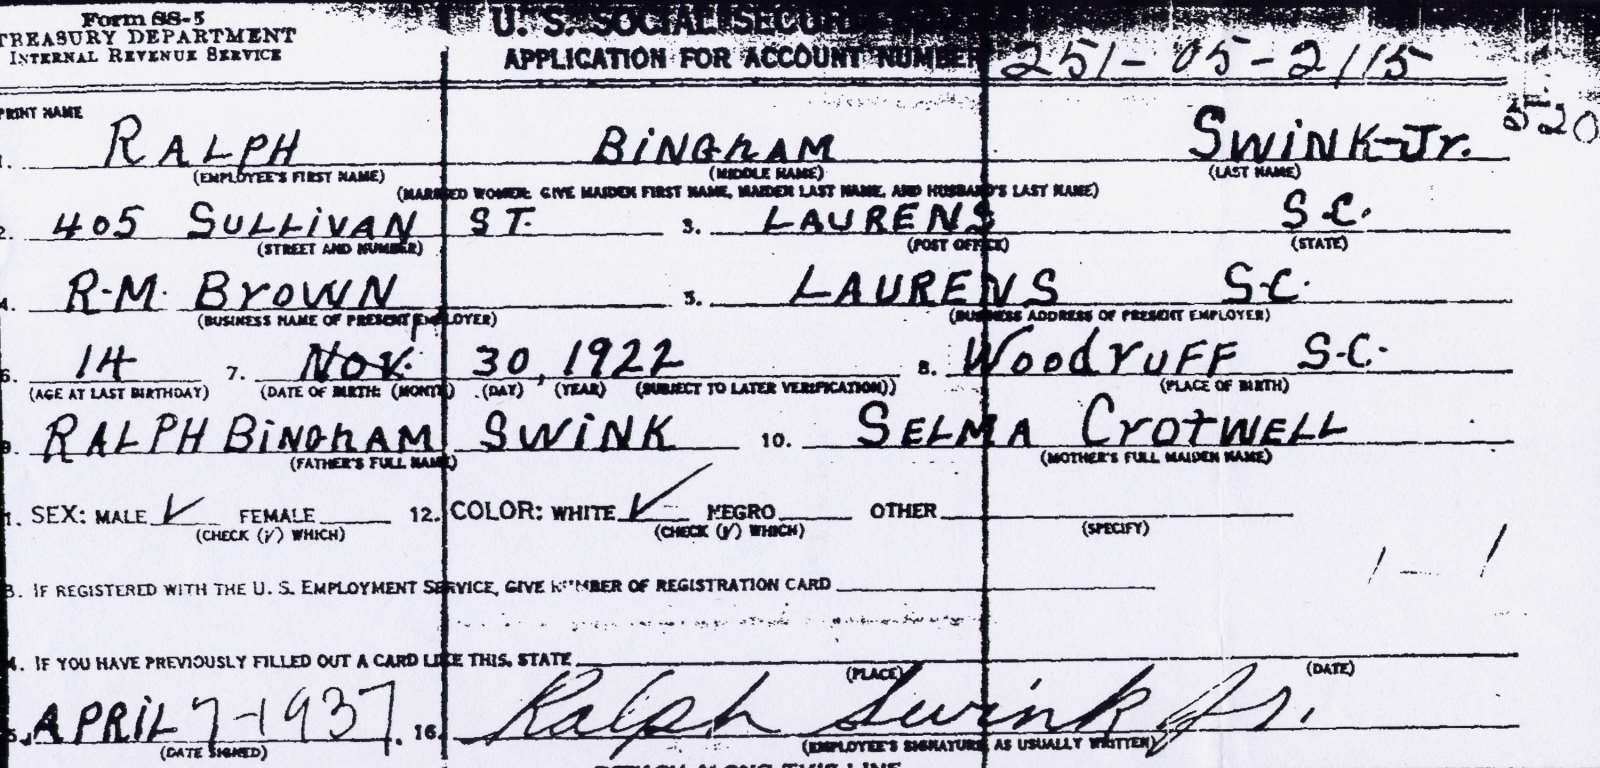 Form SS-5
TREASURY DEPARTMENT
INTERNAL REVENUE SERVICE
U. S. SOCIAL SECUR
APPLICATION FOR ACCOUNT NUMBER 251-05-2115
520
PRINT NAME
1. RALPH BiNGhAM SWiNK-Jr.
(EMPLOYEE'S FIRST NAME) (MIDDLE NAME) (LAST NAME)
(MARRIED WOMEN: GIVE MAIDEN FIRST NAME, MAIDEN LAST NAME, AND HUSBAND'S LAST NAME)
2. 405 SULLiVAN ST. 3. LAURENS S.C.
(STREET AND NUMBER) (POST OFFICE) (STATE)
4. R.M. BrOWN 5. LAURENS S.C.
(BUSINESS NAME OF PRESENT EMPLOYER) (BUSINESS ADDRESS OF PRESENT EMPLOYER)
6. 14 7. Nov. 30, 1922 8. WoodruFF S.C.
(AGE AT LAST BIRTHDAY) (DATE OF BIRTH: (MONTH) (DAY) (YEAR) (SUBJECT TO LATER VERIFICATION)) (PLACE OF BIRTH)
9. RALPH BiNGhAM SWiNK 10. SELMA CrotWELL
(FATHER'S FULL NAME) (MOTHER'S FULL MAIDEN NAME)
1. SEX: MALE ✓ FEMALE 12. COLOR: WHITE ✓ NEGRO OTHER
(CHECK (√) WHICH) (CHECK (√) WHICH) (SPECIFY)
1-1
3. IF REGISTERED WITH THE U. S. EMPLOYMENT SERVICE, GIVE NUMBER OF REGISTRATION CARD
4. IF YOU HAVE PREVIOUSLY FILLED OUT A CARD LIKE THIS, STATE
(PLACE) (DATE)
5. APRiL 7-1937. 16. Ralph Swink Jr.
(DATE SIGNED) (EMPLOYEE'S SIGNATURE, AS USUALLY WRITTEN)
DETACH ALONG THIS LINE